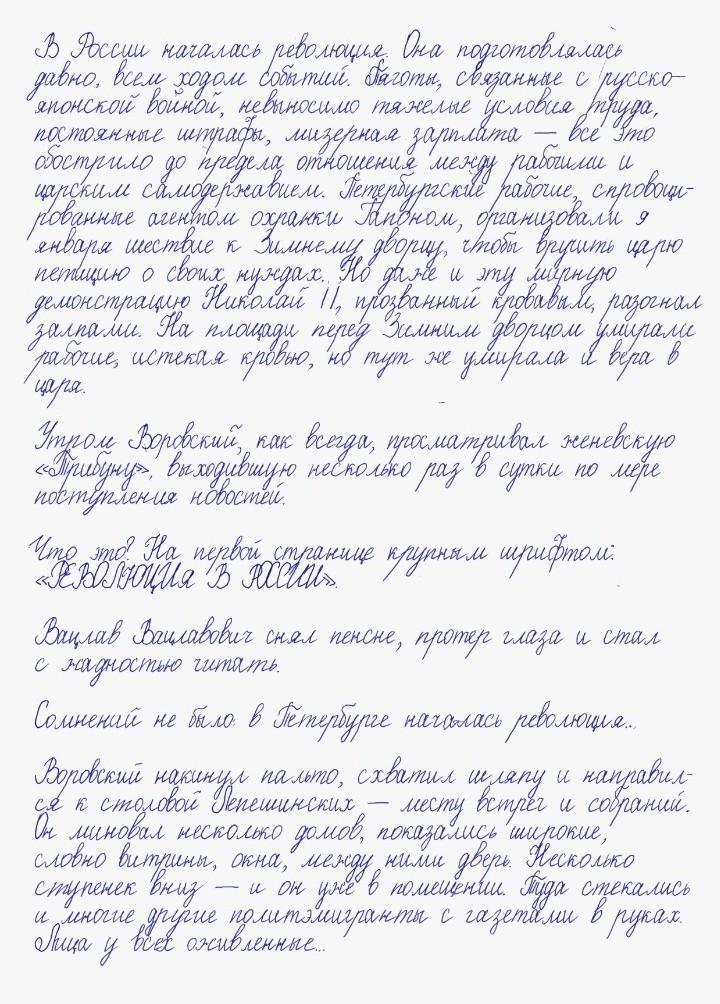 В России началась революция. Она подготовлялась
давно, всем ходом событий. Тяготы, связанные с русско-
японской войной, невыносимо тяжелые условия труда,
постоянные штрафы, мизерная зарплата — все это
обострило до предела отношения между рабочими и
царским самодержавием. Петербургские рабочие, спровоци-
рованные агентом охранки Гапоном, организовали 9
января шествие к Зимнему дворцу, чтобы вручить царю
петицию о своих нуждах. Но даже и эту мирную
демонстрацию Николай II, прозванный кровавым, разогнал
залпами. На площади перед Зимним дворцом умирали
рабочие, истекая кровью, но тут же умирала и вера в
царя.
Утром Воровский, как всегда, просматривал женевскую
«Трибуну», выходившую несколько раз в сутки по мере
поступления новостей.
Что это? На первой странице крупным шрифтом:
«РЕВОЛЮЦИЯ В РОССИИ».
Вацлав Вацлавович снял пенсне, протер глаза и стал
с жадностью читать.
Сомнений не было: в Петербурге началась революция...
Воровский накинул пальто, схватил шляпу и направил-
ся к столовой Лепешинских — месту встреч и собраний.
Он миновал несколько домов, показались широкие,
словно витрины, окна, между ними дверь. Несколько
ступенек вниз — и он уже в помещении. Туда стекались
и многие другие политэмигранты с газетами в руках.
Лица у всех оживленные...